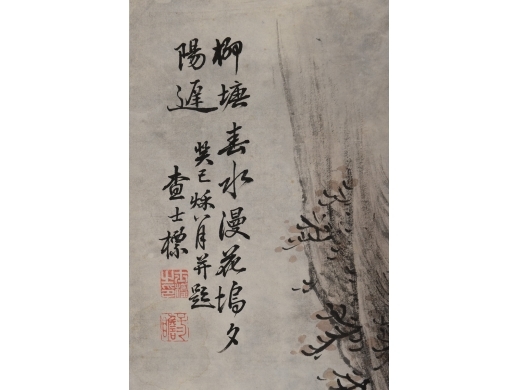 柳塘春水漫花塢夕
陽遲
癸巳秌八月并題
查士標